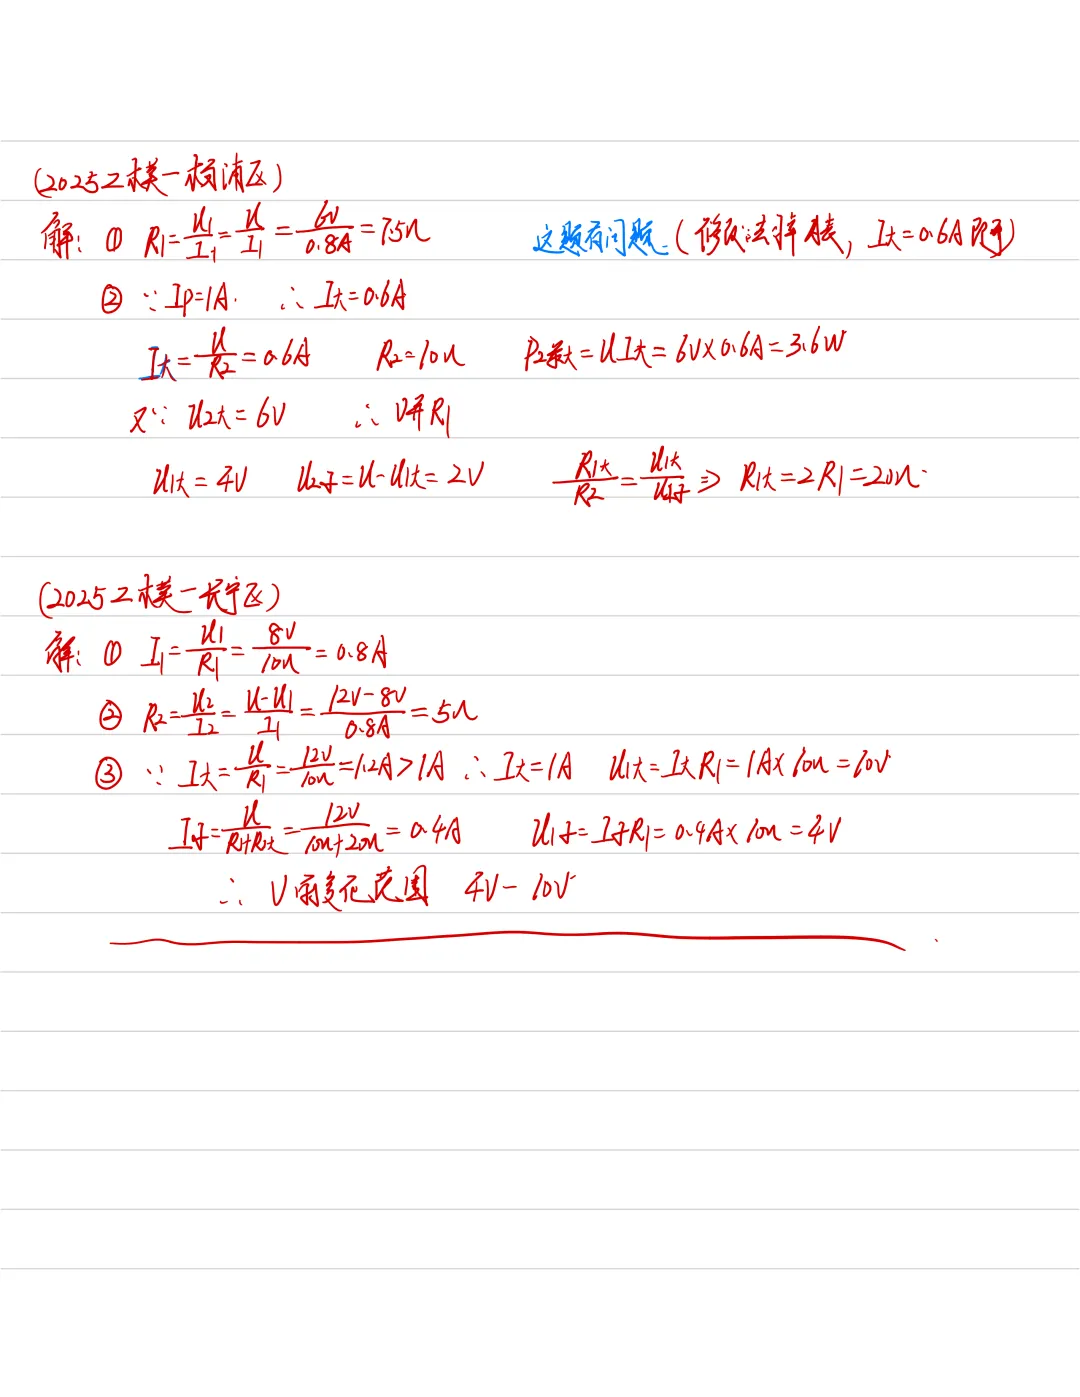 (2025二模—杨浦区)
解: ① R₁=U₁/I₁=U/I₁=6V/0.8A=7.5Ω 这题有问题.(, I大=0.6A 即可)
② ∵ I_P=1A. ∴ I大=0.6A
I大=U/R₂=0.6A R₂=10Ω P₂最大=UI大=6V×0.6A=3.6W
又∵ U₂大=6V ∴ V并R₁
U₁大=4V U₂小=U-U₁大=2V R₁大/R₂=U₁大/U₂小 ⇒ R₁大=2R₁=20Ω.
(2025二模—长宁区)
解: ① I₁=U₁/R₁=8V/10Ω=0.8A
② R₂=U₂/I₂=U-U₁/I₁=12V-8V/0.8A=5Ω
③ ∵ I大=U/R₁=12V/10Ω=1.2A>1A ∴ I大=1A U₁大=I大R₁=1A×10Ω=10V
I小=U/R₁+R₂大=12V/10Ω+20Ω=0.4A U₁小=I小R₁=0.4A×10Ω=4V
∴ V的变化范围 4V-10V